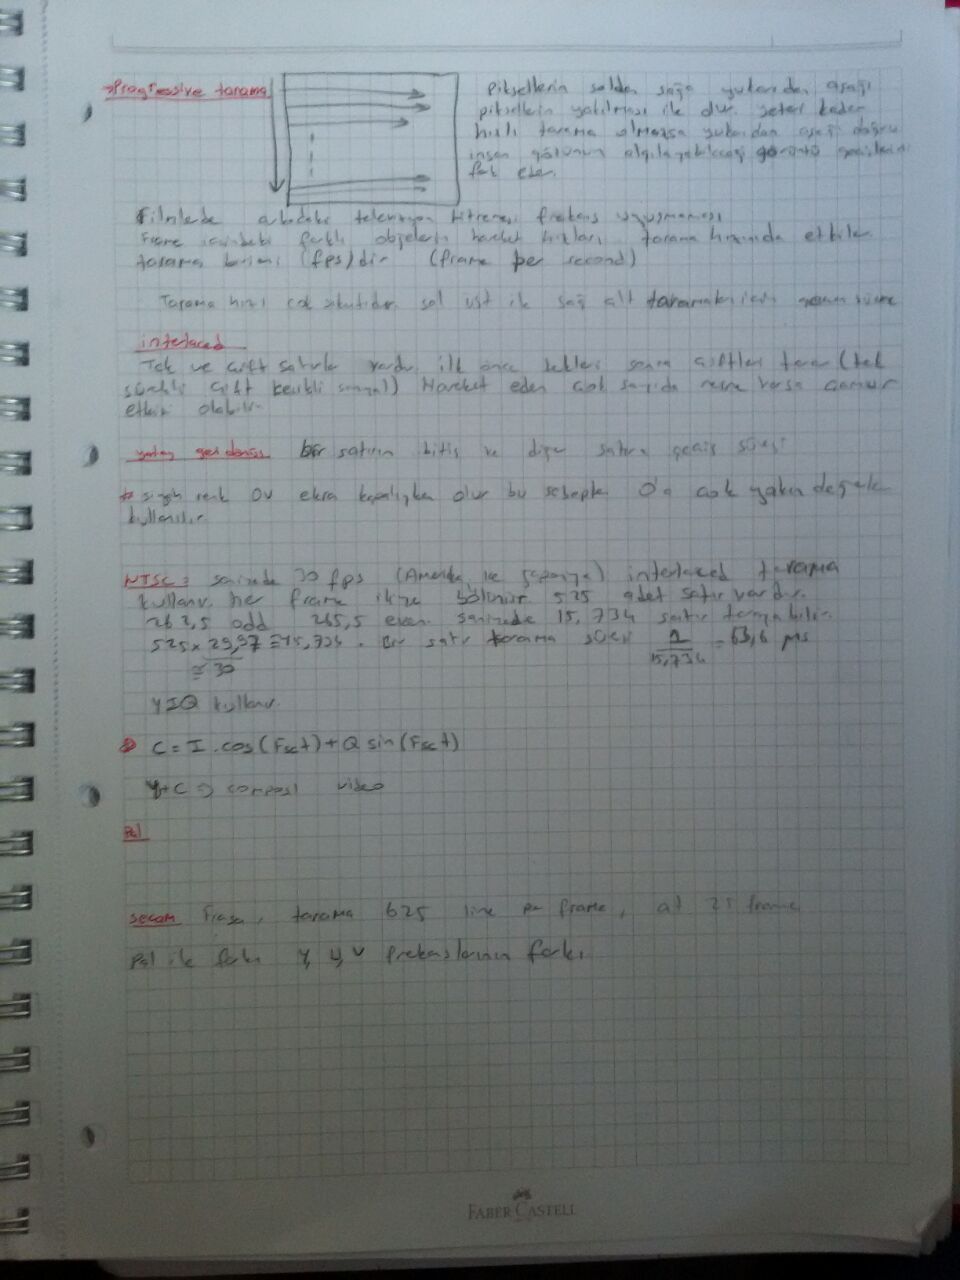 Progressive tarama
piksellerin soldan sağa yukarıdan aşağı
piksellerin yakılması ile olur. yeteri kadar
hızlı tarama olmazsa yukarıdan aşağı doğru
insan gözünün algılayabileceği görüntü geçişlerini
fark eder.
Filmlerde arkadaki televizyon titremesi frekans uyuşmaması
Frame içindeki farklı objelerin hareket hızları tarama hızında etkiler
tarama birimi (fps) dir (frame per second)
Tarama hızı çok sol üst ile sağ alt
interlaced
Tek ve çift satırlar vardır ilk önce tekleri sonra çiftleri tarar (tek
sürekli çift kesikli sinyal) Hareket eden çok sayıda nesne varsa çamur
etkisi olabilir.
yatay bir satırın bitiş ve diğer satıra geçiş süresi
* siyah renk 0V ekran kapalıyken olur bu sebeple 0'a çok yakın değerler
kullanılır.
NTSC: saniyede 30 fps (Amerika ve Japonya) interlaced tarama
kullanır. her frame ikiye bölünür. 525 adet satır vardır.
262,5 odd 265,5 even saniyede 15,734 satır tarayabilir.
525 x 29,97 ≅ 15,734. Bir satır tarama süresi 1/15,734 = 63,6 µs
≅ 30
YIQ kullanır.
C = I.cos(Fsct) + Q sin(Fsct)
Y+C => video
Pal
secam Fransa, tarama 625 line per frame, at 25 frame
Pal ile farkı Y, U, V frekanslarının farkı
FABER CASTELL